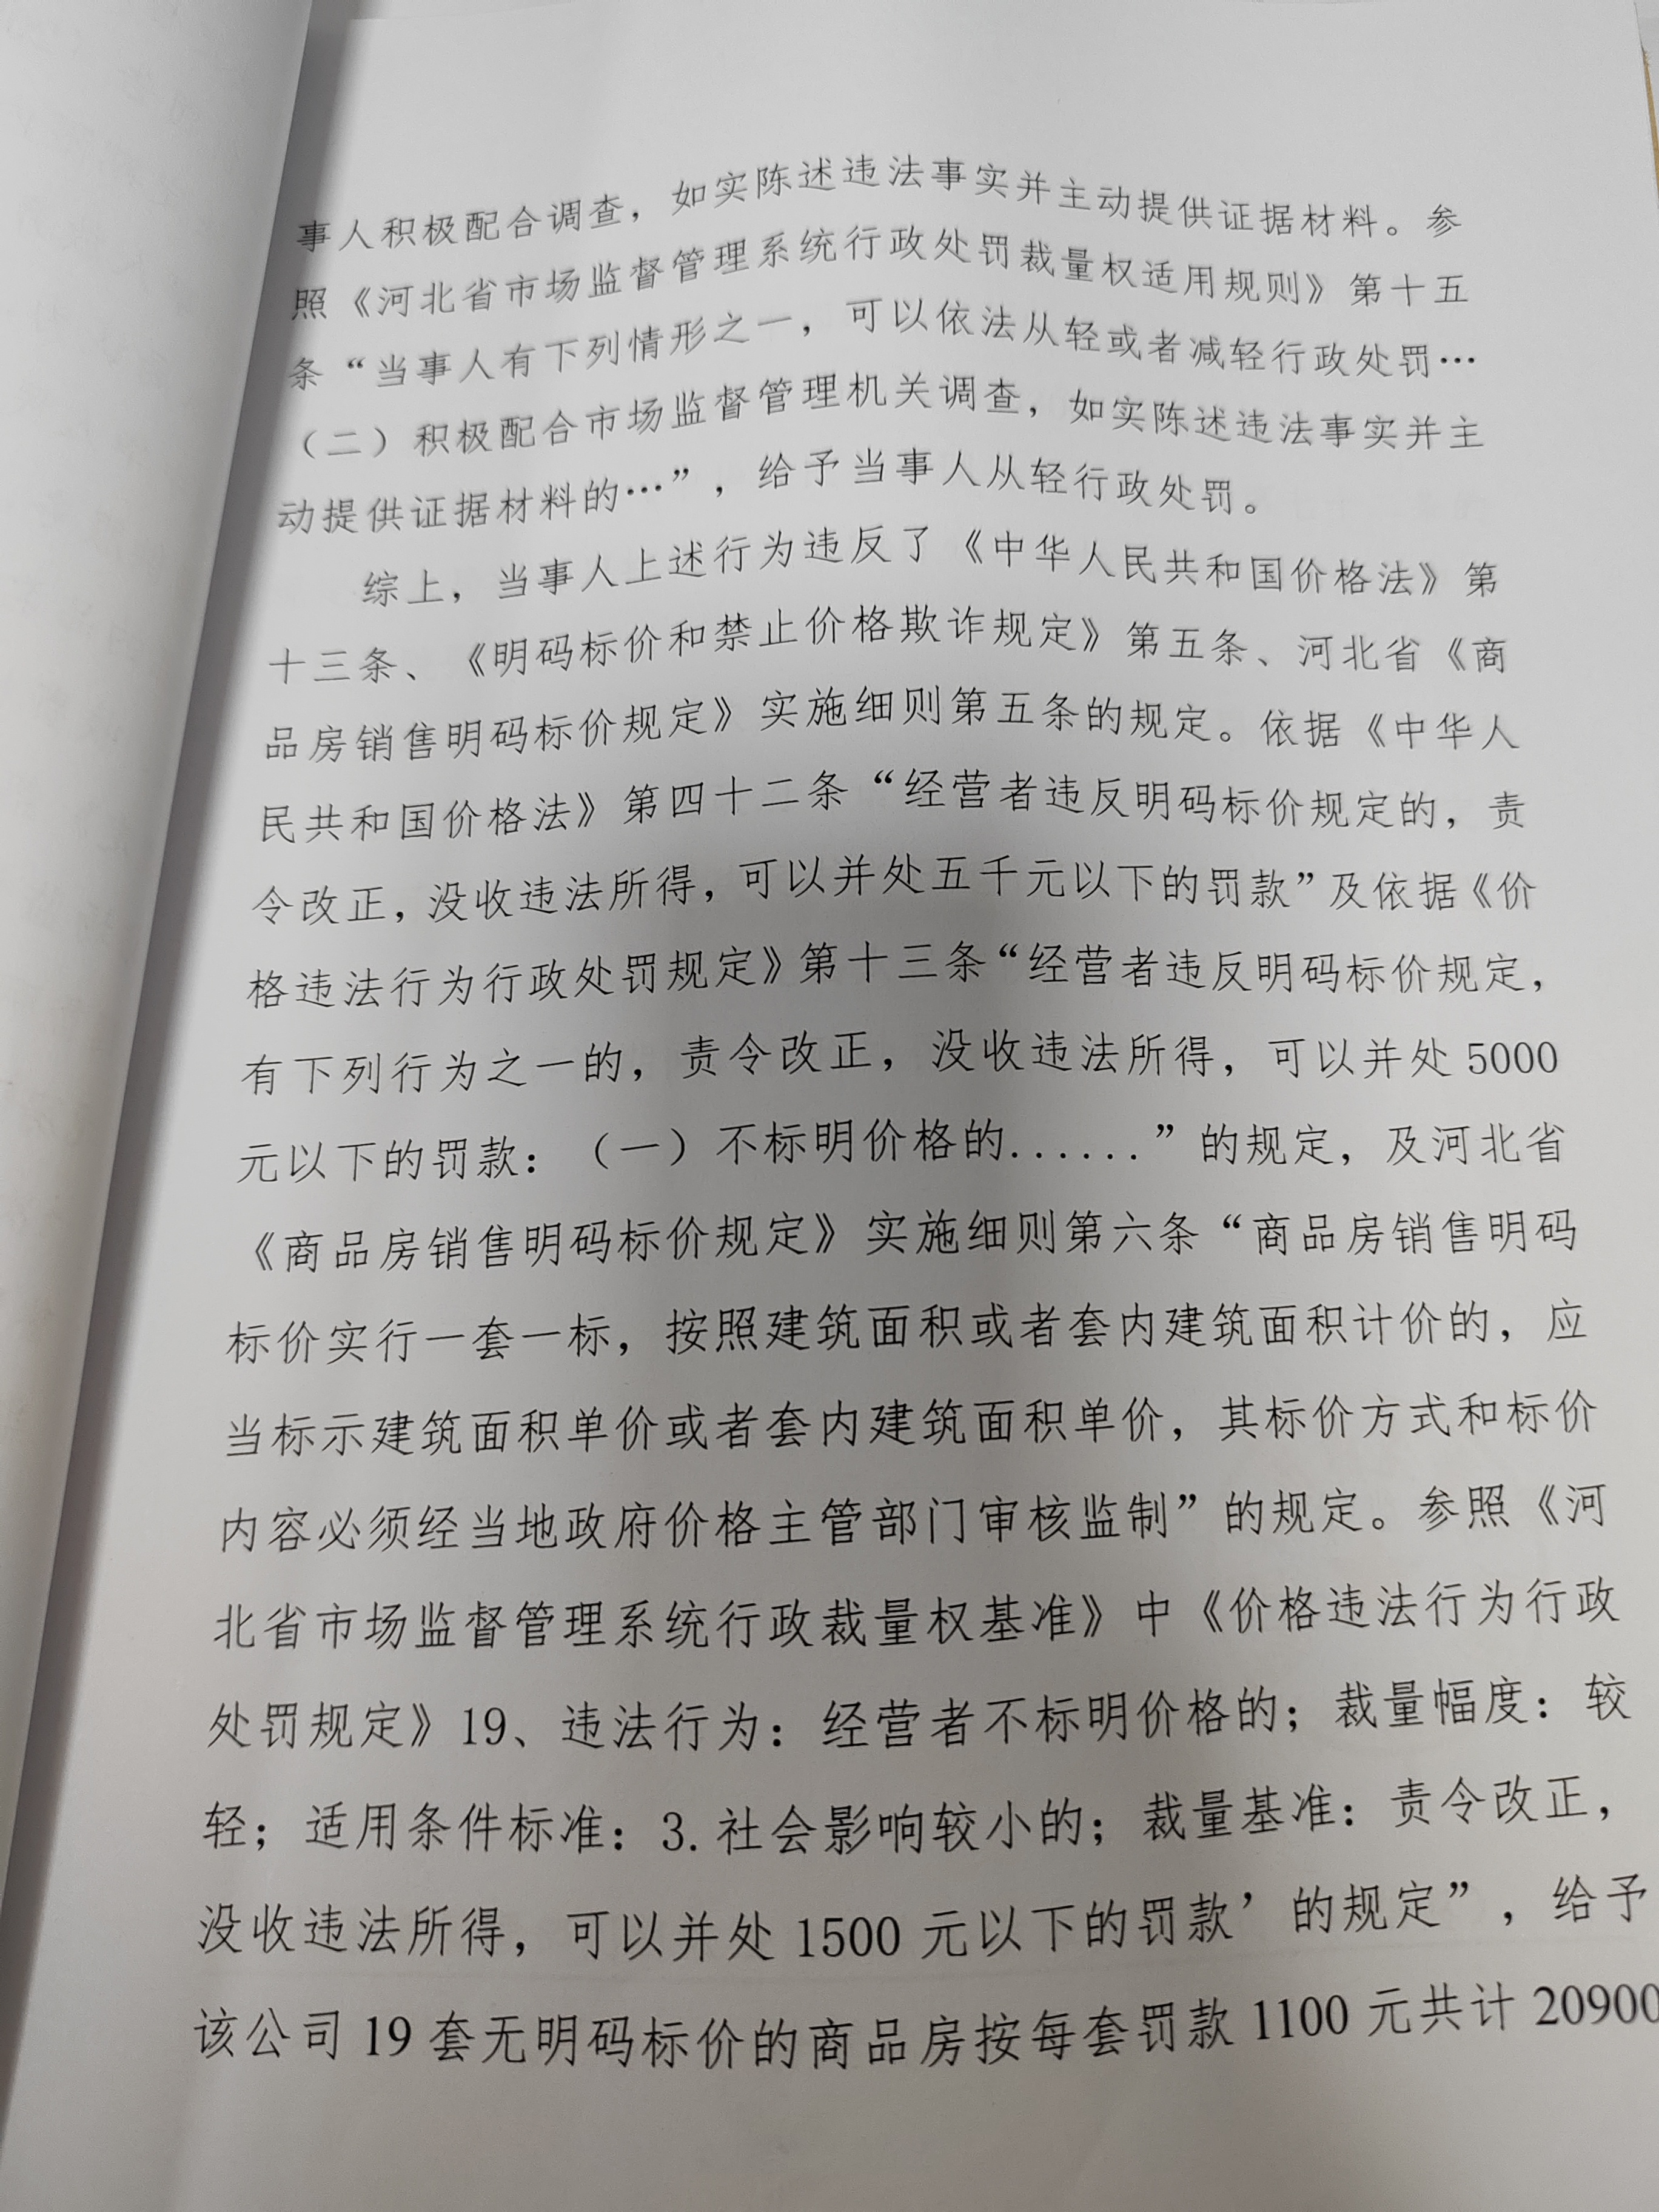 事人积极配合调查，如实陈述违法事实并主动提供证据材料。参
照《河北省市场监督管理系统行政处罚裁量权适用规则》第十五
条“当事人有下列情形之一，可以依法从轻或者减轻行政处罚…
（二）积极配合市场监督管理机关调查，如实陈述违法事实并主
动提供证据材料的…”，给予当事人从轻行政处罚。
综上，当事人上述行为违反了《中华人民共和国价格法》第
十三条、《明码标价和禁止价格欺诈规定》第五条、河北省《商
品房销售明码标价规定》实施细则第五条的规定。依据《中华人
民共和国价格法》第四十二条“经营者违反明码标价规定的，责
令改正，没收违法所得，可以并处五千元以下的罚款”及依据《价
格违法行为行政处罚规定》第十三条“经营者违反明码标价规定，
有下列行为之一的，责令改正，没收违法所得，可以并处 5000
元以下的罚款：（一）不标明价格的......”的规定，及河北省
《商品房销售明码标价规定》实施细则第六条“商品房销售明码
标价实行一套一标，按照建筑面积或者套内建筑面积计价的，应
当标示建筑面积单价或者套内建筑面积单价，其标价方式和标价
内容必须经当地政府价格主管部门审核监制”的规定。参照《河
北省市场监督管理系统行政裁量权基准》中《价格违法行为行政
处罚规定》19、违法行为：经营者不标明价格的；裁量幅度：较
轻；适用条件标准：3.社会影响较小的；裁量基准：责令改正，
没收违法所得，可以并处 1500 元以下的罚款’的规定”，给予
该公司 19 套无明码标价的商品房按每套罚款 1100 元共计 20900